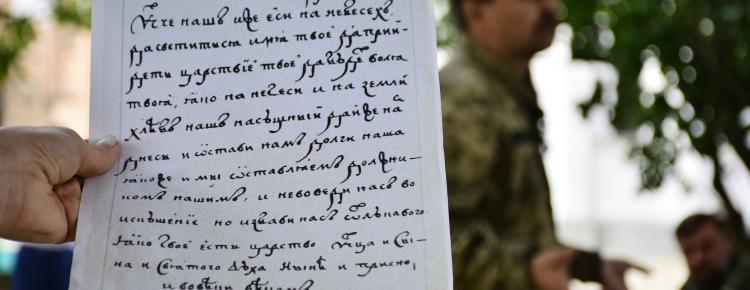 Ѿче нашъ иже еси на небесехъ,
да светитися имя твое да прий-
дети царствіе твое да будѣ волѧ
твоꙗ, ꙗко на небеси и на земли
хлѣбъ нашъ насущный даждь на
днеси и ѡстави намъ долги наша
ꙗкоже и мы ѡставлꙗемъ должни-
комъ нашимъ, и невоведи насъ во
искꙋшеніе но избави насъ ѿ лукавого.
ꙗко твое есть царство Ѿца и Сы-
на и Святого Дꙋха нынѣ и присно,
и вовѣки вѣкомъ